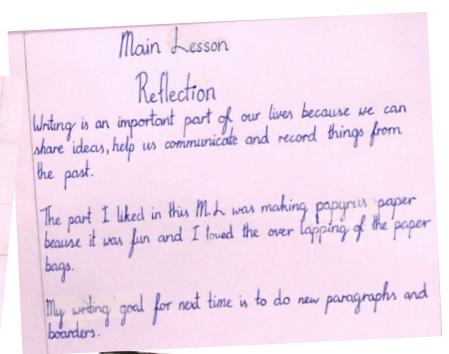 Main Lesson
Reflection
Writing is an important part of our lives because we can
share ideas, help us communicate and record things from
the past.
The part I liked in this M.L was making papyrus paper
beause it was fun and I loved the over lapping of the paper
bags.
My writing goal for next time is to do new paragraphs and
boarders.